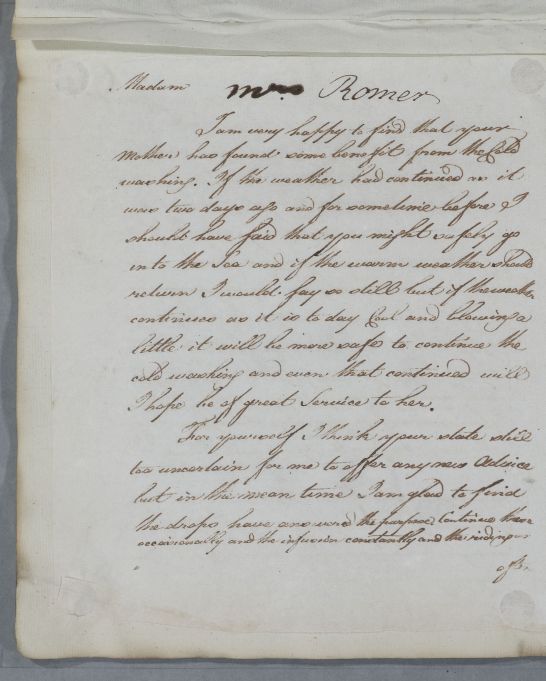 Madam Mrs Romer
I am very happy to find that your
Mother has found some benefit from the Cold
washing. If the weather had continued as it
was two days ago and for sometime before &
should have said that you might safely go
into the Sea and if the warm weather should
return I would say so still but if the weather
continues as it is to day Cool and blowing a
little it will be more safe to continue the
cold washing and even that continued will
I hope be of great Service to her.
For yourself I think your state still
too uncertain for me to offer any new Advice
but in the mean time I am glad to find
the drops have answered the purpose, Continue them
occasionally and the infusion constantly and the riding